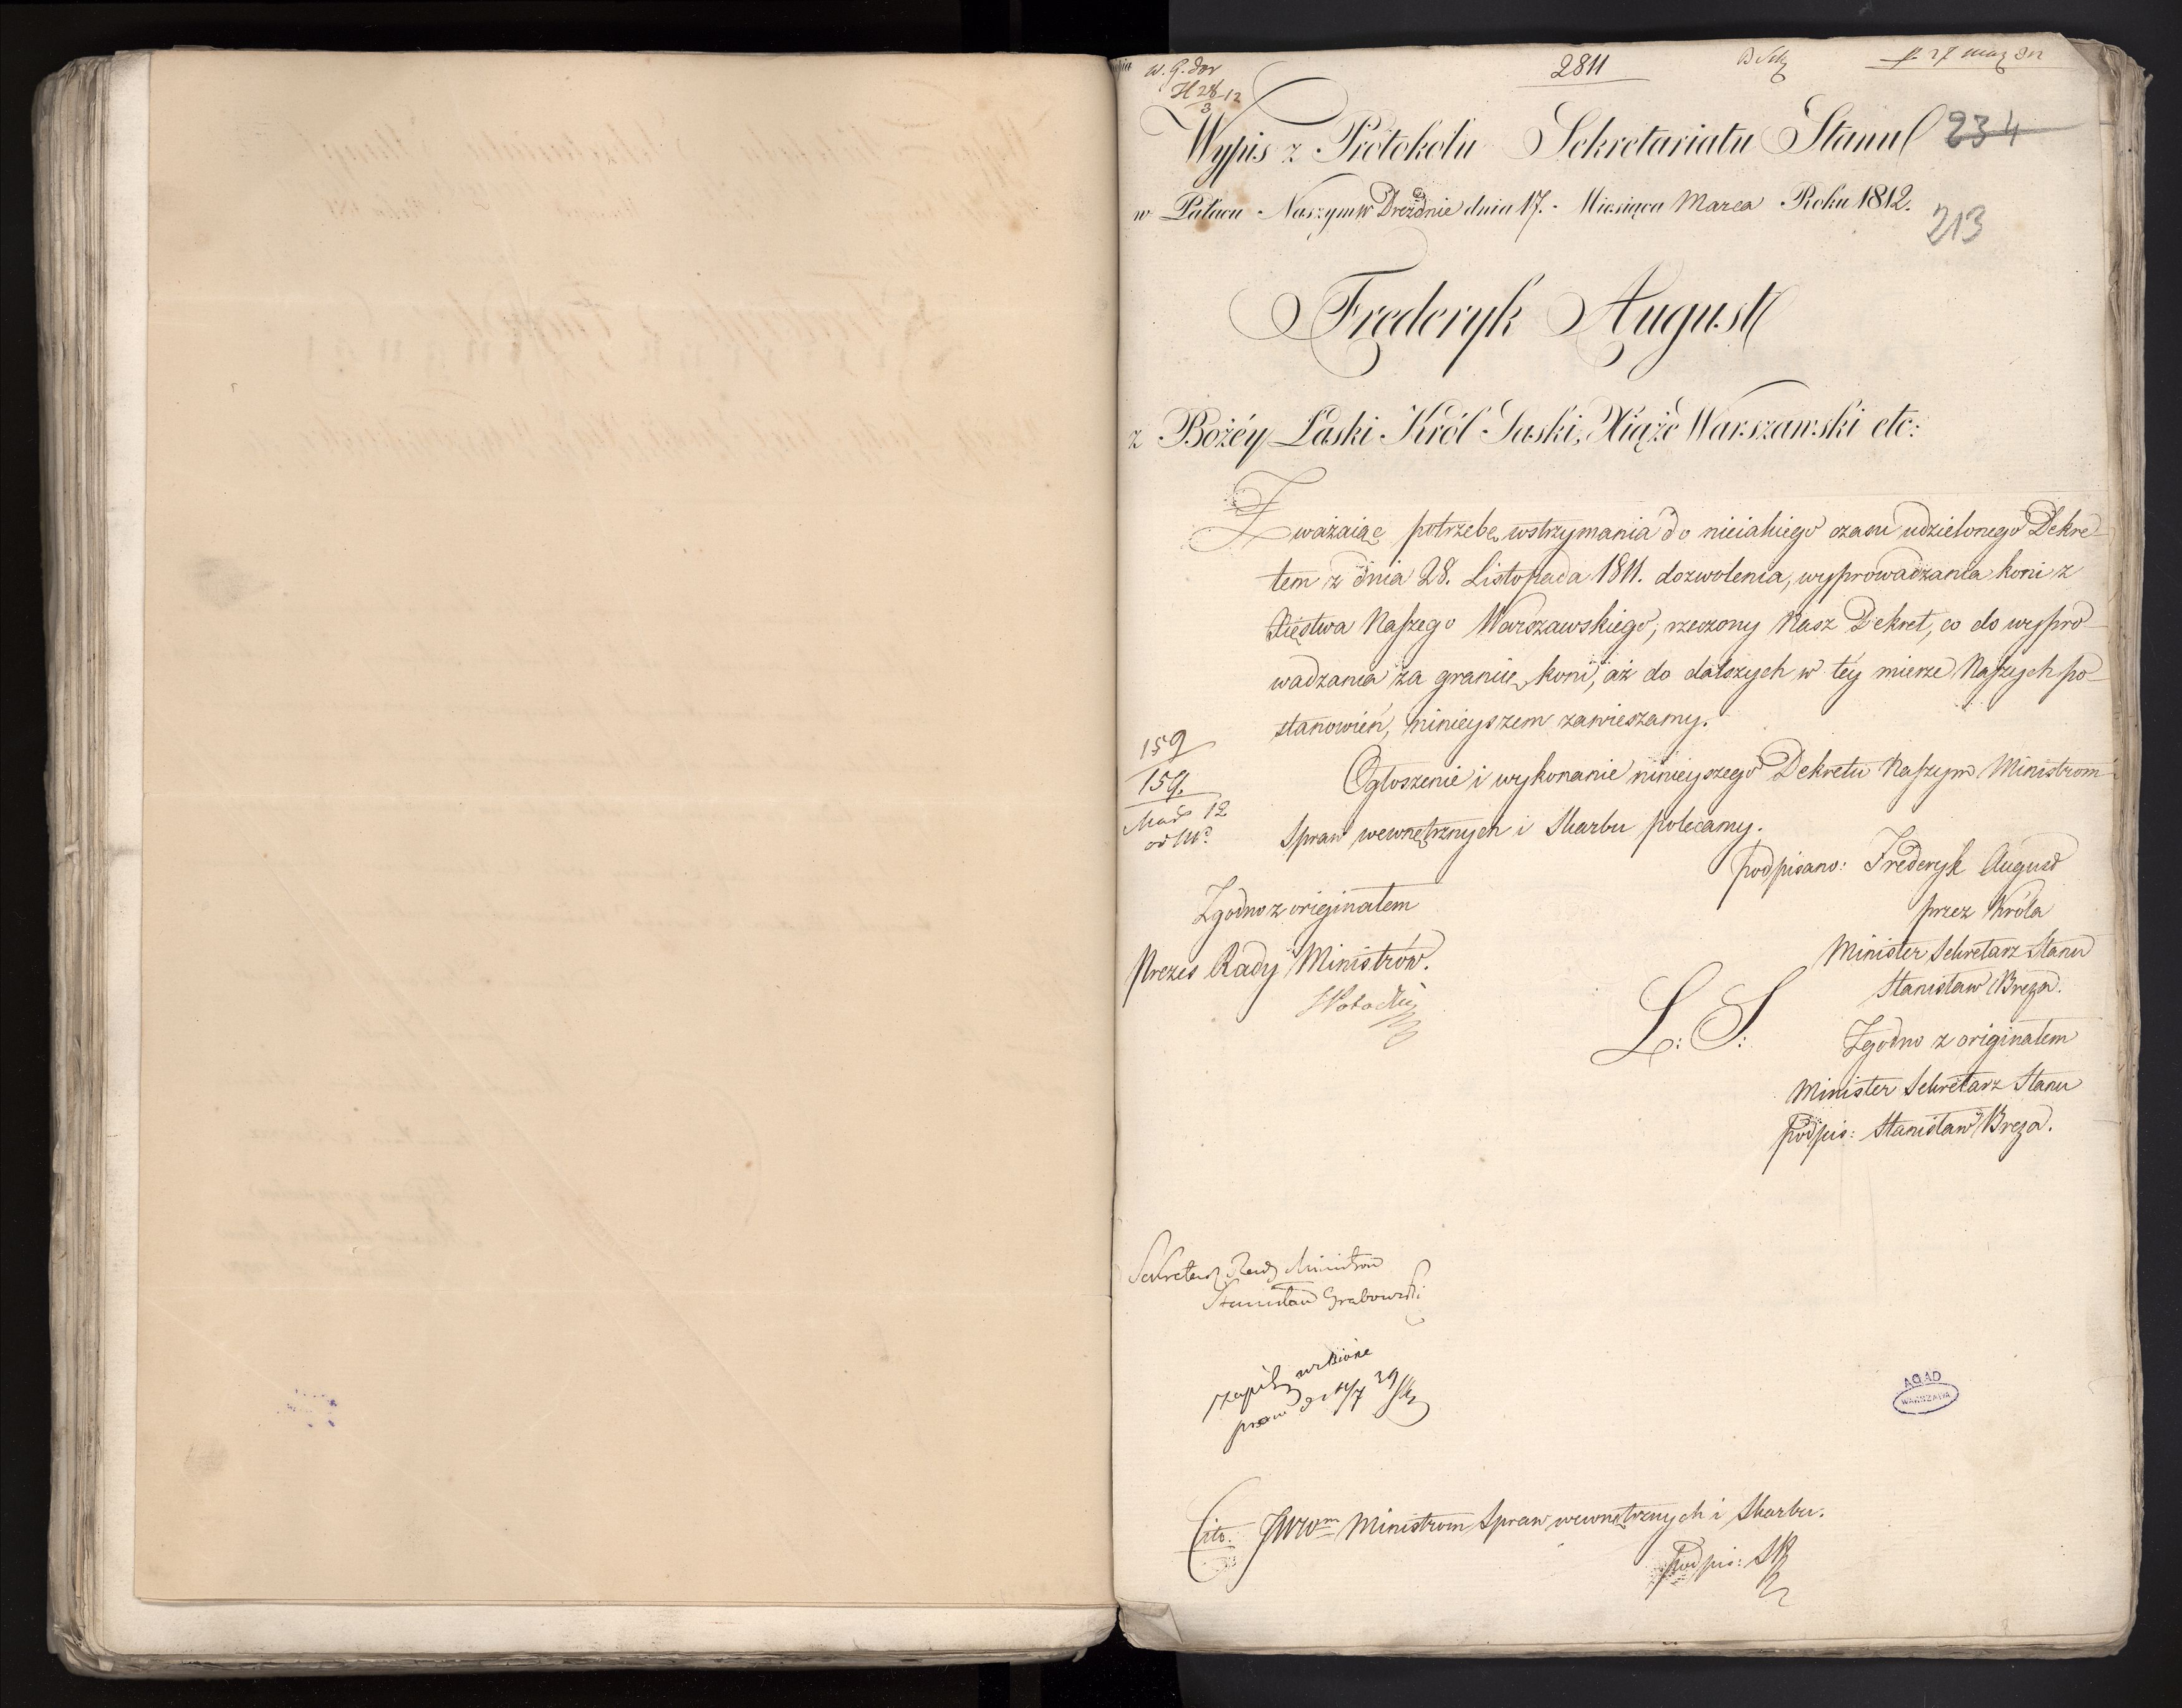 2811
234
213
Wypis z Protokołu Sekretariatu Stanu
w Pałacu Naszym w Dreźdnie dnia 17. Miesiąca Marca Roku 1812.
Frederyk August
z Bożéy Łaski Król Saski, Xiąże Warszawski etc:
Zważaiąc potrzebę wstrzymania do nieiakiego czasu udzielonego Dekre-
tem z dnia 28. Listopada 1811. dozwolenia, wyprowadzania koni z
Xięstwa Naszego Warszawskiego; rzeczony Nasz Dekret, co do wypro-
wadzania za granicę koni, aż do dalszych w téy mierze Naszych po-
stanowień, ninieyszem zawieszamy.
Ogłoszenie i wykonanie ninieyszego Dekretu Naszym Ministrom
Spraw wewnętrznych i Skarbu polecamy.
159
159.
podpisano: Frederyk August
przez Króla
Minister Sekretarz Stanu
Stanisław Breza.
Zgodno z originałem
Prezes Rady Ministrów.
L: S:
Zgodno z originałem
Minister Sekretarz Stanu
podpis: Stanisław Breza.
Sekretarz Rady Ministrów
Stanisław Grabowski
AGAD
WARSZAWA
Cito. JWWom Ministrom Spraw wewnętrznych i Skarbu.
podpis: